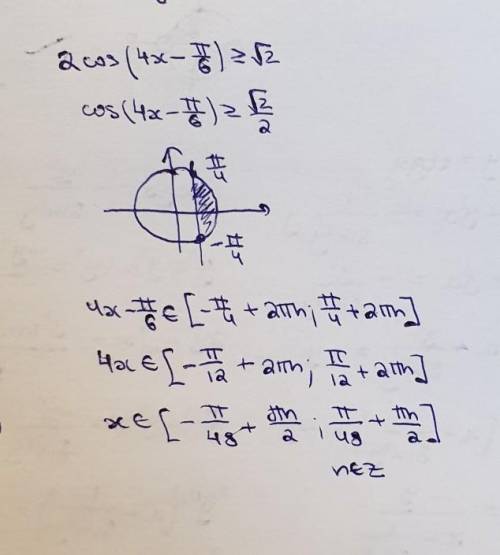 2cos(4x - π/6) ≥ √2
cos(4x - π/6) ≥ √2/2
π/4
-π/4
4x - π/6 ∈ [-π/4 + 2πn; π/4 + 2πn]
4x ∈ [-π/12 + 2πn; π/12 + 2πn]
x ∈ [-π/48 + πn/2; π/48 + πn/2]
n∈Z